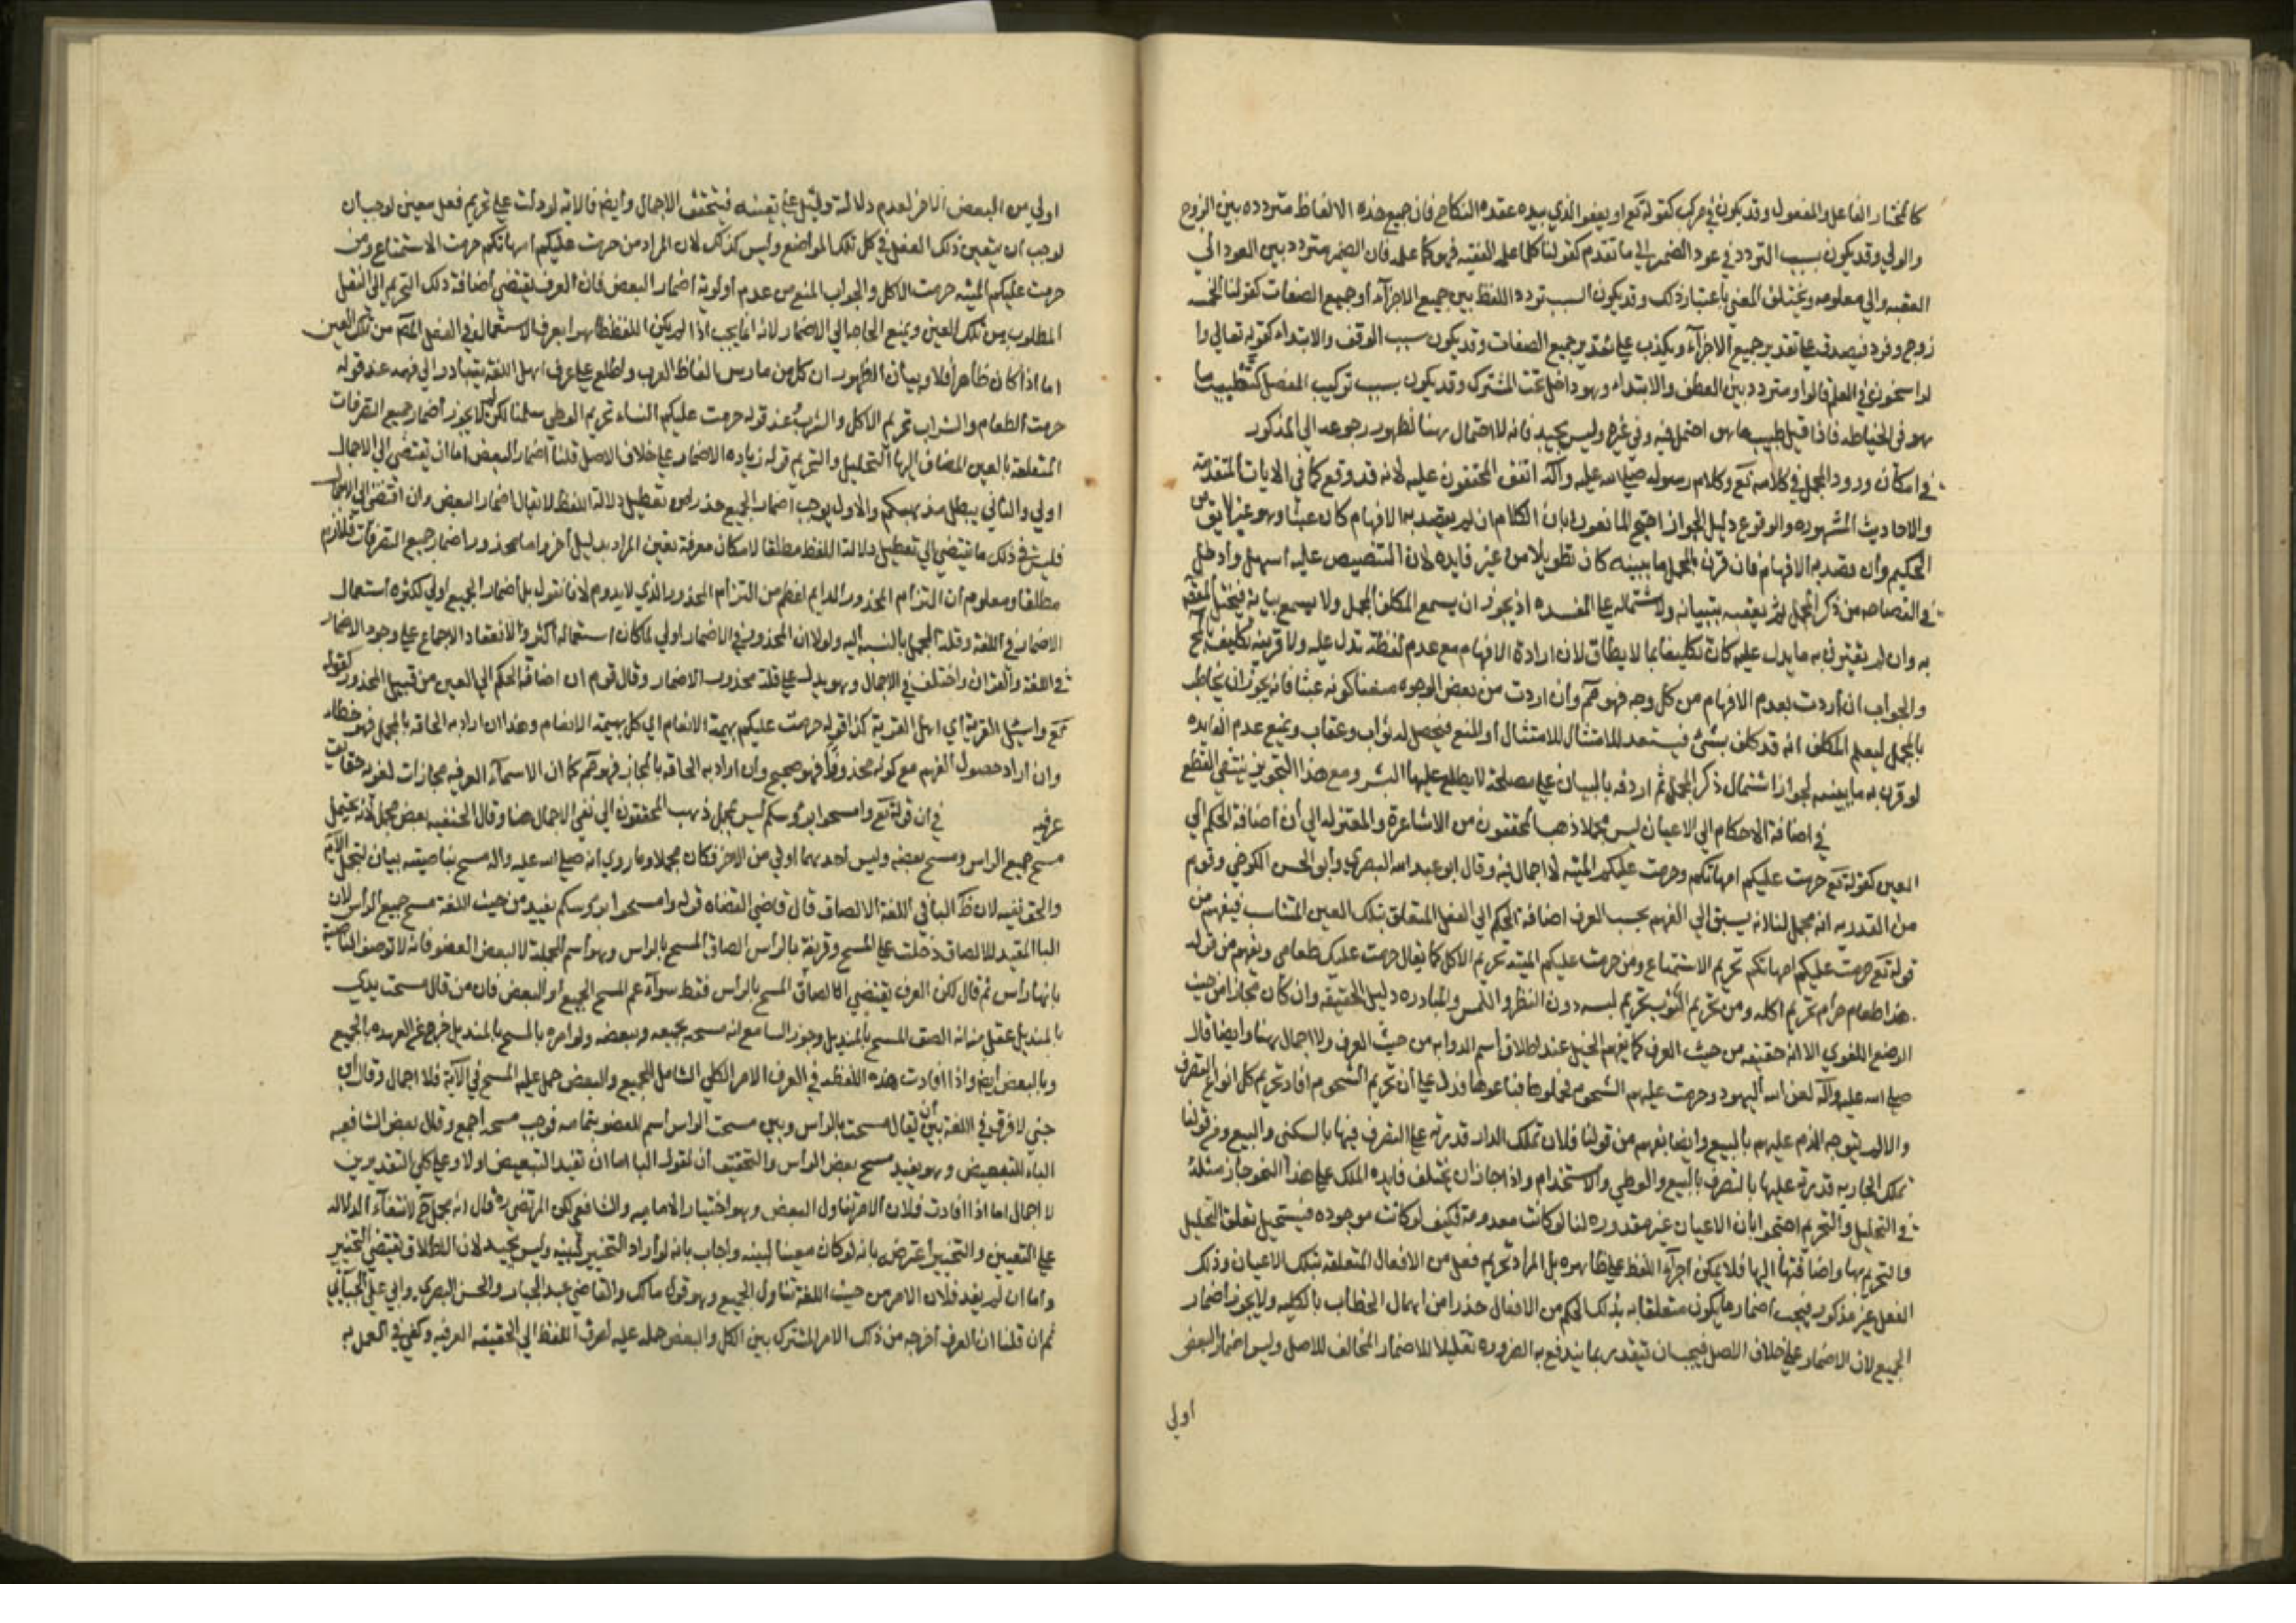 كالمختار الفاعل والمفعول وقد يكون في مركب كقوله تع او يعفو الذي بيده عقدة النكاح فان جميع هذه الالفاظ مترددة بين الزوج
والولي وقد يكون بسبب التردد في عود الضمير الي ما تقدم كقولنا كلما علم الفقيه فهو كما علمه فان الضمير متردد بين العود الي
الفقيه والي معلومه ويختلف المعني باعتبار ذلك وقد يكون السبب تردد اللفظ بين جميع الاجزآء او جميع الصفات كقولنا الخمسه
زوج وفرد فيصدق علي تقدير جميع الاجزآء ويكذب علي تقدير جميع الصفات وقد يكون بسبب الوقف والابتداء كقوله تعالي وا
لراسخون في العلم فالواو متردد بين العطف والابتداء وهو داخل تحت المشترك وقد يكون بسبب تركيب المفصل كطبيب ما
هو في الخياطه فاذا قيل طبيب ماهر احتمل فيه وفي غيره وليس بجيد فانه لا احتمال هنا لظهور رجوعه الي المذكور
في امكان ورود المجمل في كلامه تع وكلام رسوله صلي الله عليه وآله اتفق المحققون عليه لانه قد وقع كما في الايات المتقدمة
والاحاديث المشهوره والوقوع دليل الجواز احتج المانعون بان الكلام ان لم يقصد به الافهام كان عبثا وهو غير لايق من
الحكيم وان قصد به الافهام فان قرن بالمجمل ما يبينه كان تطويلا من غير فايده لان التنصيص عليه اسهل وادخل
في الفصاحه من ذكر المجمل ثم يعقبه بتبيانه ولاشتماله علي المفسده اذ يجوز ان يسمع المكلف المجمل ولا يسمع بيانه فيختل
به وان لم يقترن به ما يدل عليه كان تكليفا بما لا يطاق لان ارادة الافهام مع عدم لفظة تدل عليه ولا قرينه تكليف
والجواب ان اردت بعدم الافهام من كل وجه فهو مم وان اردت من بعض الوجوه منعنا كونه عبثا فانه يجوز ان يخاطب
بالمجمل ليعلم المكلف انه قد كلف بشئ فيستعد للامتثال او المنع فيحصل له ثواب وعقاب ويمنع عدم الفائده
لو قرن به ما يبينه لجواز اشتمال ذكر المجمل ثم اردفه بالبيان علي مصلحة لا يطلع عليها البشر ومع هذا التجويز ينتفي القطع
في اضافة الاحكام الي الاعيان ليس مجملا ذهب المحققون من الاشاعرة والمعتزله الي أن اضافة الحكم الي
العين كقوله تع حرمت عليكم امهاتكم وحرمت عليكم الميته لا اجمال فيه وقال ابو عبد الله البصري وابو الحسن الكرخي وقوم
من القدريه انه مجمل لنا انه يسبق الي الفهم بحسب العرف اضافة الحكم الي الفعل المتعلق بتلك العين فيفهم من
قوله تع حرمت عليكم امهاتكم تحريم الاستمتاع ومن حرمت عليكم الميته تحريم الاكل كما يقال حرمت عليك طعامي ويفهم من قوله
هذا طعام حرام تحريم اكله ومن تحريم الثوب تحريم لبسه دون النظر واللمس والمبادره دليل الحقيقه وان كان مجازا من حيث
الوضع اللغوي الا انه حقيقه من حيث العرف كما يفهم الخيل عند اطلاق اسم الدوابه من حيث العرف ولا اجمال هنا وايضا قال
صلي الله عليه وآله لعن الله اليهود حرمت عليهم الشحوم فجملوها فباعوها فدل علي ان تحريم الشحوم افاد تحريم كل انواع التصرف
والا لم يتوجه الذم عليهم بالبيع وايضا يفهم من قولنا فلان تملك الدار قدرته علي التصرف فيها بالسكني والبيع ومن قولنا
تملك الجاريه قدرته عليها بالتصرف بالبيع والوطي والاستخدام واذا جاز ان يختلف فايده الملك علي هذا النحو جاز مثله
في التحليل والتحريم احتجوا بان الاعيان غير مقدوره لنا لو كانت معدومة فكيف لو كانت موجوده فيستحيل تعلق التحليل
والتحريم بها واضافتها اليها فلا يمكن اجراء اللفظ علي ظاهره بل المراد تحريم فعل من الافعال المتعلقه بتلك الاعيان وذلك
الفعل غير مذكور فيجب اضمار ما يكون متعلقا به بذلك الحكم من الافعال حذرا من اهمال الخطاب بالكليه ولا يجوز اضمار
الجميع لان الاضمار علي خلاف الاصل فيجب ان يتقدر بما يندفع به الضروره تقليلا للاضمار المخالف للاصل وليس اضمار البعض
اولي
اولي من البعض الاخر لعدم دلالة دليل علي تعينه فتحقق الاجمال وايضا فالاية لو دلت علي تحريم فعل معين لوجب ان
لوجب ان يتعين ذلك الفعل في كل تلك المواضع وليس كذلك لان المراد من حرمت عليكم امهاتكم حرمت الاستمتاع ومن
حرمت عليكم الميته حرمت الاكل والجواب المنع من عدم اولوية اضمار البعض فان العرف يقتضي اضافة ذلك التحريم الي الفعل
المطلوب من تلك العين ويمنع الحاجه الي الاضمار لانه انما يجب اذا لم يكن اللفظ ظاهرا بعرف الاستعمال في الفعل من تلك العين
اما اذا كان ظاهرا فلا وبيان الظهور ان كل من مارس الفاظ العرب واطلع علي عرف اهل اللغة يتبادر الي فهمه عند قوله
حرمت الطعام والشراب تحريم الاكل والشرب وعند قوله حرمت عليكم النساء تحريم الوطي سلمنا لكن لم لا يجوز اضمار جميع التصرفات
المتعلقة بالعين المضاف اليها التحليل والتحريم قوله زيادة الاضمار علي خلاف الاصل قلنا اضمار البعض اما ان يقتضي الي الاجمال
اولي والثاني يبطل مذهبكم والاول يوجب اضمار الجميع حذرا من تعطيل دلالة اللفظ لا يقال اضمار البعض وان اقتضي الي الاجمال
فليس في ذلك ما يقتضي الي تعطيل دلالة اللفظ مطلقا لامكان معرفة تعين المراد بدليل اخر واما محذور اضمار جميع التصرفات فلازم
مطلقا ومعلوم ان التزام المحذور الدايم اعظم من التزام المحذور الذي لا يدوم لانا نقول بل اضمار الجميع اولي لكثره استعمال
الاضمار في اللغة وقلة المجمل بالنسبة اليه ولولا ان المحذور في الاضمار اولي لما كان استعماله اكثر ولانعقاد الاجماع علي وجود الاضمار
في اللغة والقران واختلف في الاجمال وهو يدل علي قلة محذور الاضمار وقال قوم ان اضافة الحكم الي العين من قبيل المحذوف كقوله
تع واسئل القرية اي اهل القرية كذا قوله حرمت عليكم بهيمة الانعام اي اكل بهيمة الانعام وهذا ان اراد به الحاقه بالمجمل فهو خطاء
وان اراد حصول الفهم مع كونه محذوفا فهو صحيح وان اراد به الحاقه بالمجاز فهو مم كما ان الاسمآء العرفيه مجازات لغويه حقايق
عرفيه في ان قوله تع وامسحوا برؤسكم ليس بمجمل ذهب المحققون الي نفي الاجمال هنا وقال الحنفيه بعض مجمل لانه يحتمل
مسح جميع الراس ومسح بعضه وليس احدهما اولي من الاخر فكان مجملا وما روي انه صلي الله عليه واله مسح بناصيته بيان لمجمل الآية
والحق نفيه لان البا في اللغة الالصاق قال قاضي القضاه قوله وامسحوا برؤسكم يفيد من حيث اللغة مسح جميع الرأس لان
البا المفيد للالصاق دخلت علي المسح وقرينة بالرأس الصاق المسح بالراس وهو اسم للجملة لا لبعض العضو فانه لا توصف الناصية
بانها راس ثم قال لكن العرف يقتضي الصاق المسح بالراس فقط سوآء عم المسح الجميع او البعض فان من قال مسحت يدي
بالمنديل عقل منه انه الصق المسح بالمنديل وجوز السامع انه مسحه بجميعه وببعضه ولو امره بالمسح بالمنديل خرج عن العهده بالجميع
وبالبعض ايضا واذا افادت هذه اللفظه في العرف الامر الكلي الشامل للجميع والبعض حمل عليه المسح في الآية فلا اجمال وقال ابن
جني لا فرق في اللغة بين أن يقال مسحت بالراس وبين مسحت الراس اسم للعضو بتمامه فوجب مسحه اجمع وقال بعض الشافعيه
الباء للتبعيض وهو يفيد مسح بعض الرأس والتحقيق أن نقول البا اما ان تفيد التبعيض اولا وعلي كلي التقديرين
لا اجمال اما اذا افادت فلان الامر تناول البعض وهو اختيار الاماميه والشافعي لكن المرتضي ره قال انه مجمل لانتفآء الدلاله
علي التعيين والتخيير اعترض بانه لو كان معينا لبينه واجاب بانه لو أراد التخيير لبينه وليس بجيد لان الاطلاق يقتضي التخيير
واما ان لم يفد فلان الامر من حيث اللغة تناول الجميع وهو قول مالك والقاضي عبد الجبار والحسن البصري وابي علي الجبآئي
ثم ان قلنا ان العرف اخرجه من ذلك الامر المشترك بين الكل والبعض حمله عليه لصرف اللفظ الي الحقيقه العرفيه وكفي في العمل به